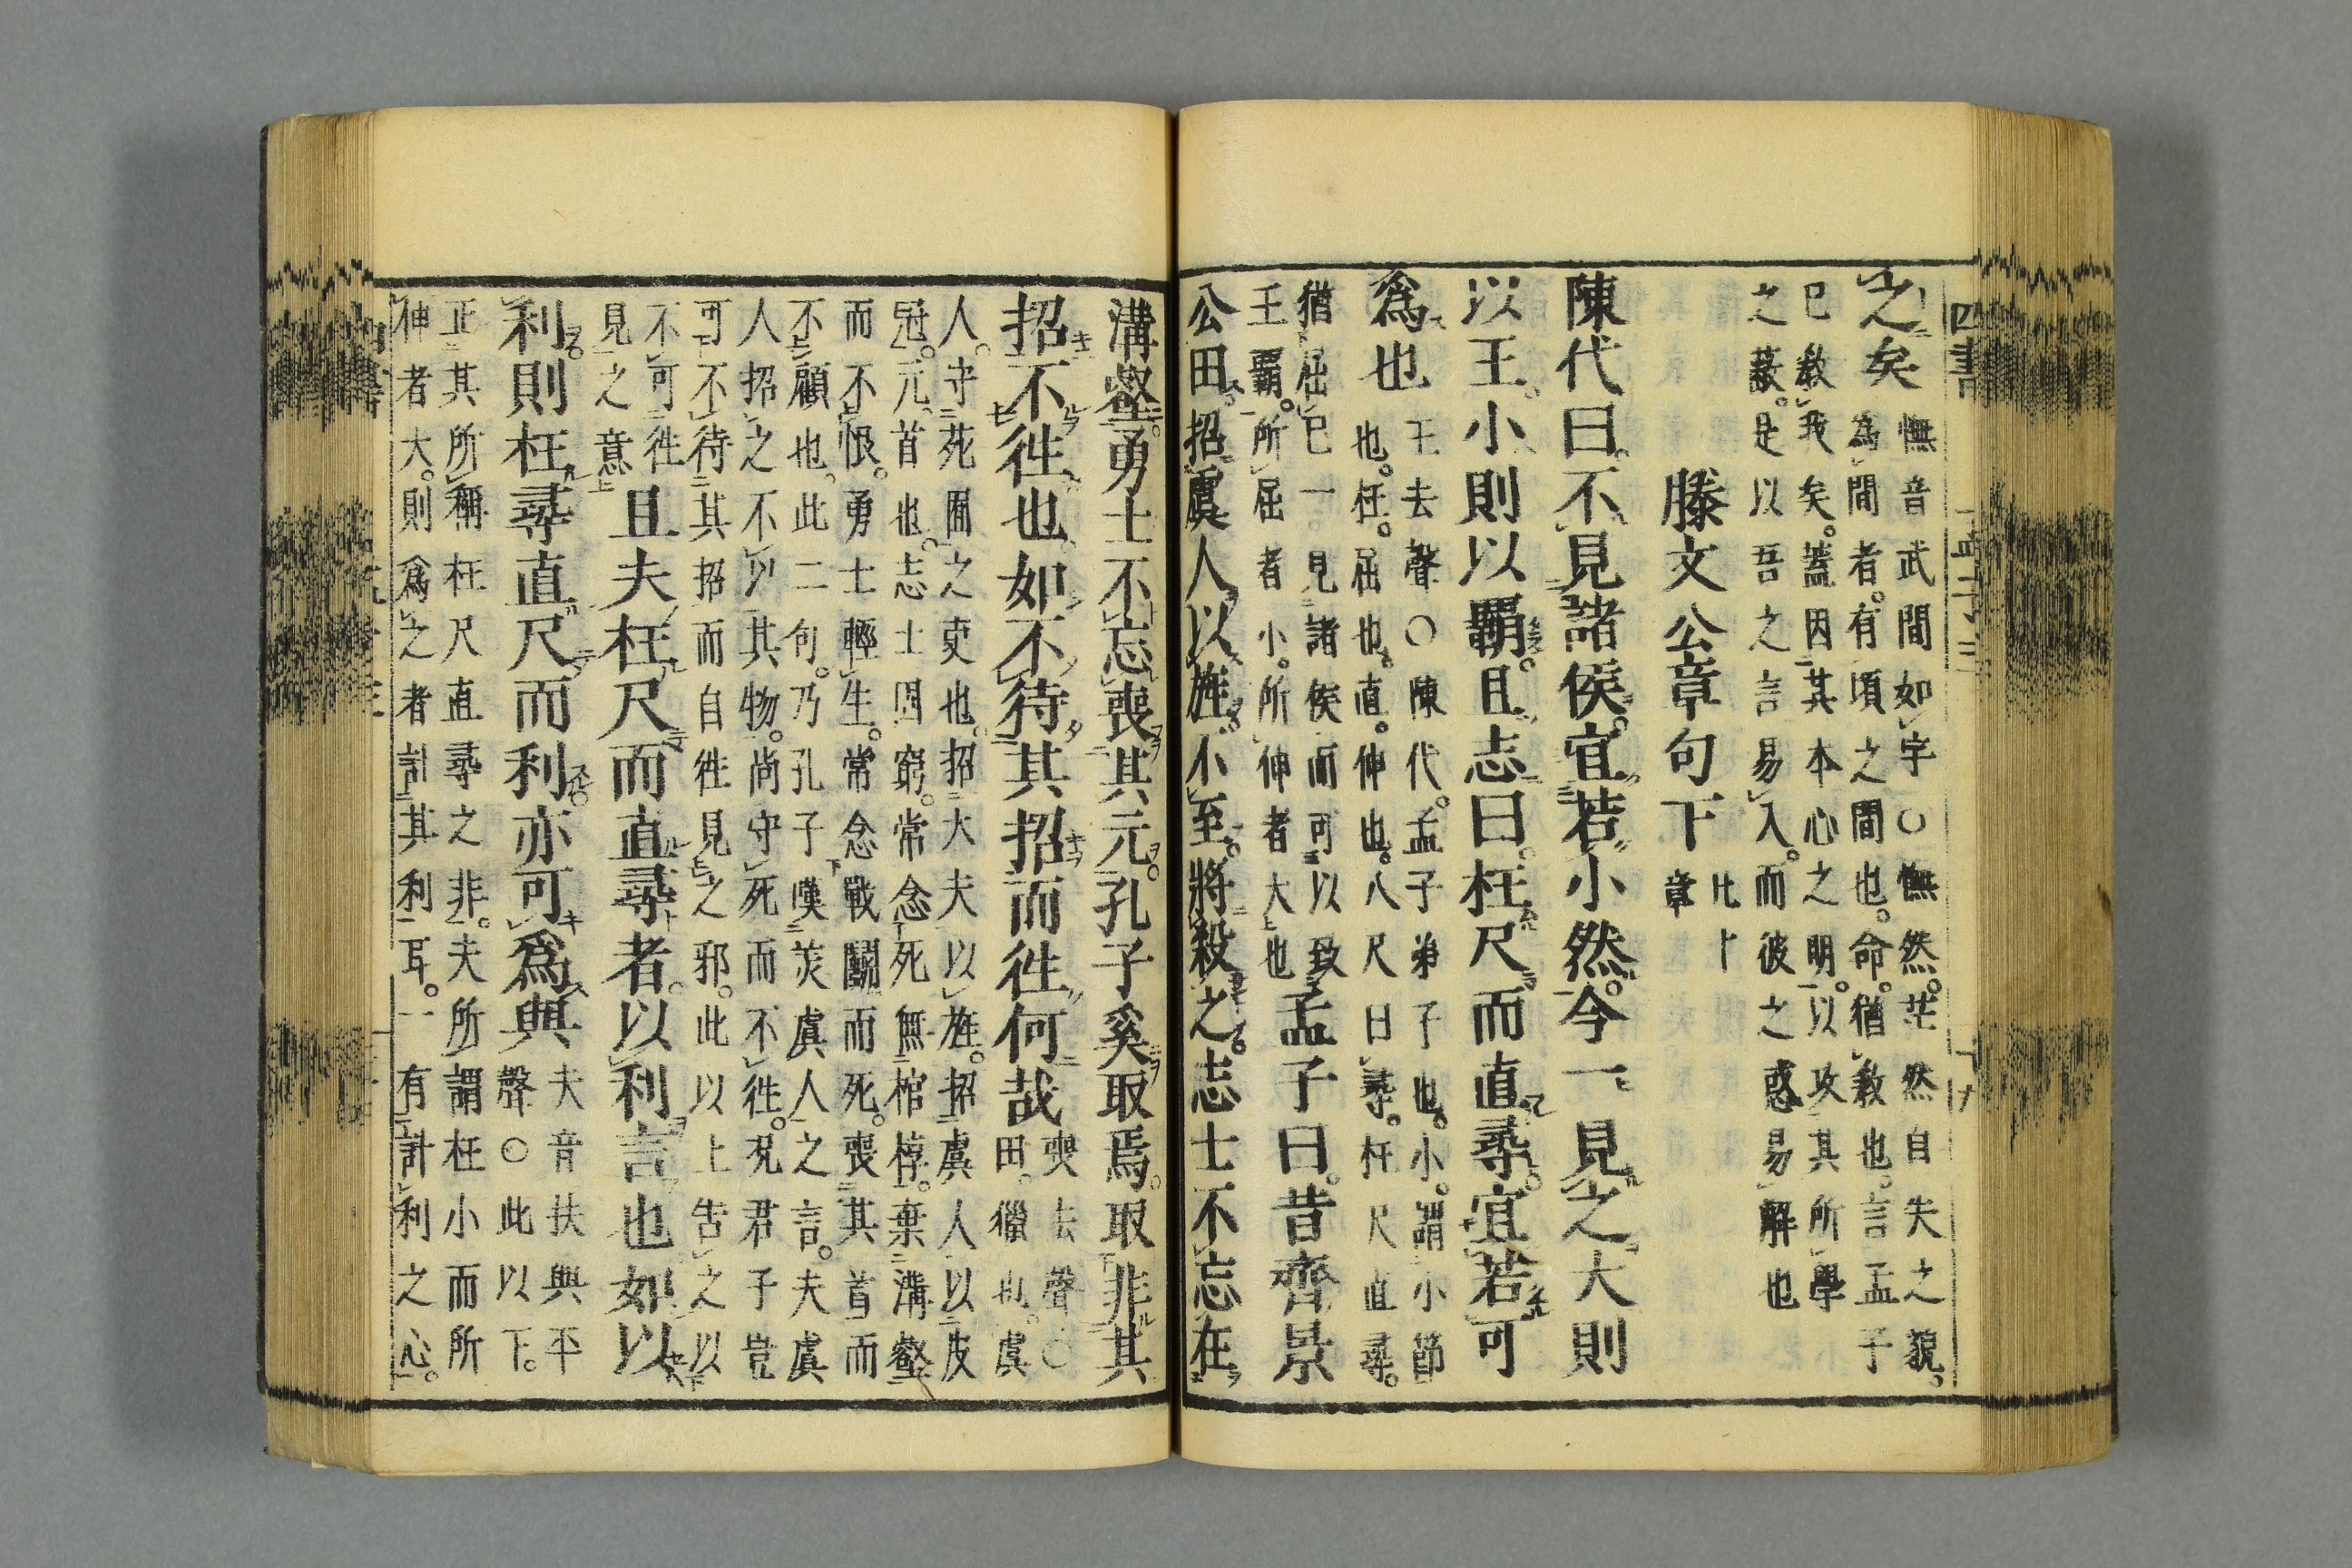 四書
孟子三
之矣
憮音武間如字○憮然。茫然自失之貌。
為間者。有頃之間也。命。猶教也。言孟子
已教我矣。蓋因其本心之明。以攻其所學
之蔽。是以吾之言易入。而彼之惑易解也
滕文公章句下
凡十
章
陳代曰。不見諸侯。宜若小然。今一見之。大則
以王。小則以霸。且志曰。枉尺而直尋。宜若可
爲也
王去聲○陳代。孟子弟子也。小。謂小節
也。枉。屈也。直。伸也。八尺曰尋。枉尺直尋。
猶屈己一見諸侯而可以致
王霸。所屈者小。所伸者大也
孟子曰。昔齊景
公田。招虞人以旌。不至。將殺之。志士不忘在
溝壑。勇士不忘喪其元。孔子奚取焉。取非其
招不徃也。如不待其招而徃何哉
喪去聲○
田。獵也。虞
人。守苑囿之吏也。招大夫以旌。招虞人以皮
冠。元。首也。志士固窮。常念死無棺椁。棄溝壑
而不恨。勇士輕生。常念戰鬬而死。喪其首而
不顧也。此二句。乃孔子嘆羙虞人之言。夫虞
人招之不以其物。尚守死而不徃。况君子豈
可不待其招而自徃見之邪。此以上告之以
不可徃
見之意
且夫枉尺而直尋者。以利言也。如以
利。則枉尋直尺而利。亦可爲與
夫音扶與平
聲○此以下。
正其所稱枉尺直尋之非。夫所謂枉小而所
伸者大。則爲之者計其利耳。一有計利之心。